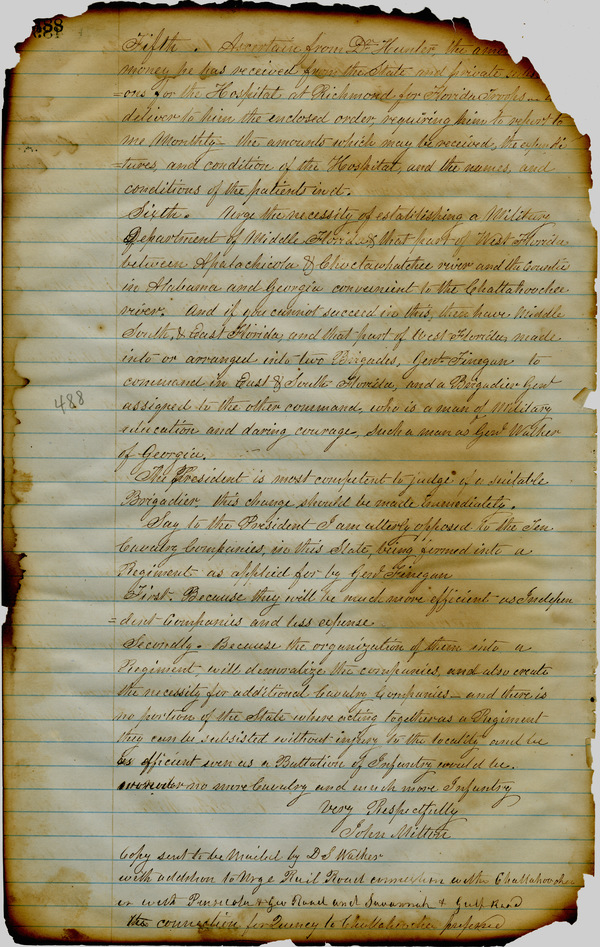 488
Fifth. Ascertain from Dr Hunter the
money he has received from the State and private
=ons for the Hospital at Richmond for Florida Troops
deliver to him the enclosed order, requiring him to report to
me Monthly - the amounts which may be received, the expendi
=tures, and condition of the Hospital, and the names, and
conditions of the patients in it.
Sixth. Urge the necessity of establishing a Military
Department of Middle Florida & that part of West Florida
between Apalachicola & Choctawhatchee river and the Counties
in Alabama and Georgia convenient to the Chattahoochee
river. And if you cannot succeed in this, then have Middle
South, & East Florida, and that part of West Florida, made
into or arranged into two Brigades, Genl Finegan to
command in East & South Florida, and a Brigadier Genl
488
assigned to the other command, who is a man of Military
education and daring courage, such a man as Genl Walker
of Georgia.
The President is most competent to judge of a suitable
Brigadier this change should be made immediately.
Say to the President I am utterly opposed to the Ten
Cavalry Companies, in this State, being formed into a
Regiment as applied for by Genl Finegan
First. Because they will be much more efficient as Indepen
=dent Companies and less expense
Secondly. Because the organization of them into a
Regiment will demoralize the companies, and also create
the necessity for additional Cavalry Companies - and there is
no portion of the State where acting together as a Regiment
they can be subsisted without injury to the locality and be
as efficient even as a Battalion of Infantry would be.
no more Cavalry and much more Infantry
Very Respectfully
John Milton
Copy sent to be Mailed by D S Walker
with addition to Urge Rail Road connexion with Chattahoochee
or with Pensacola & Geo Road and Savannah & Gulf Road
the connection for Quincy to Chattahoochee preferred